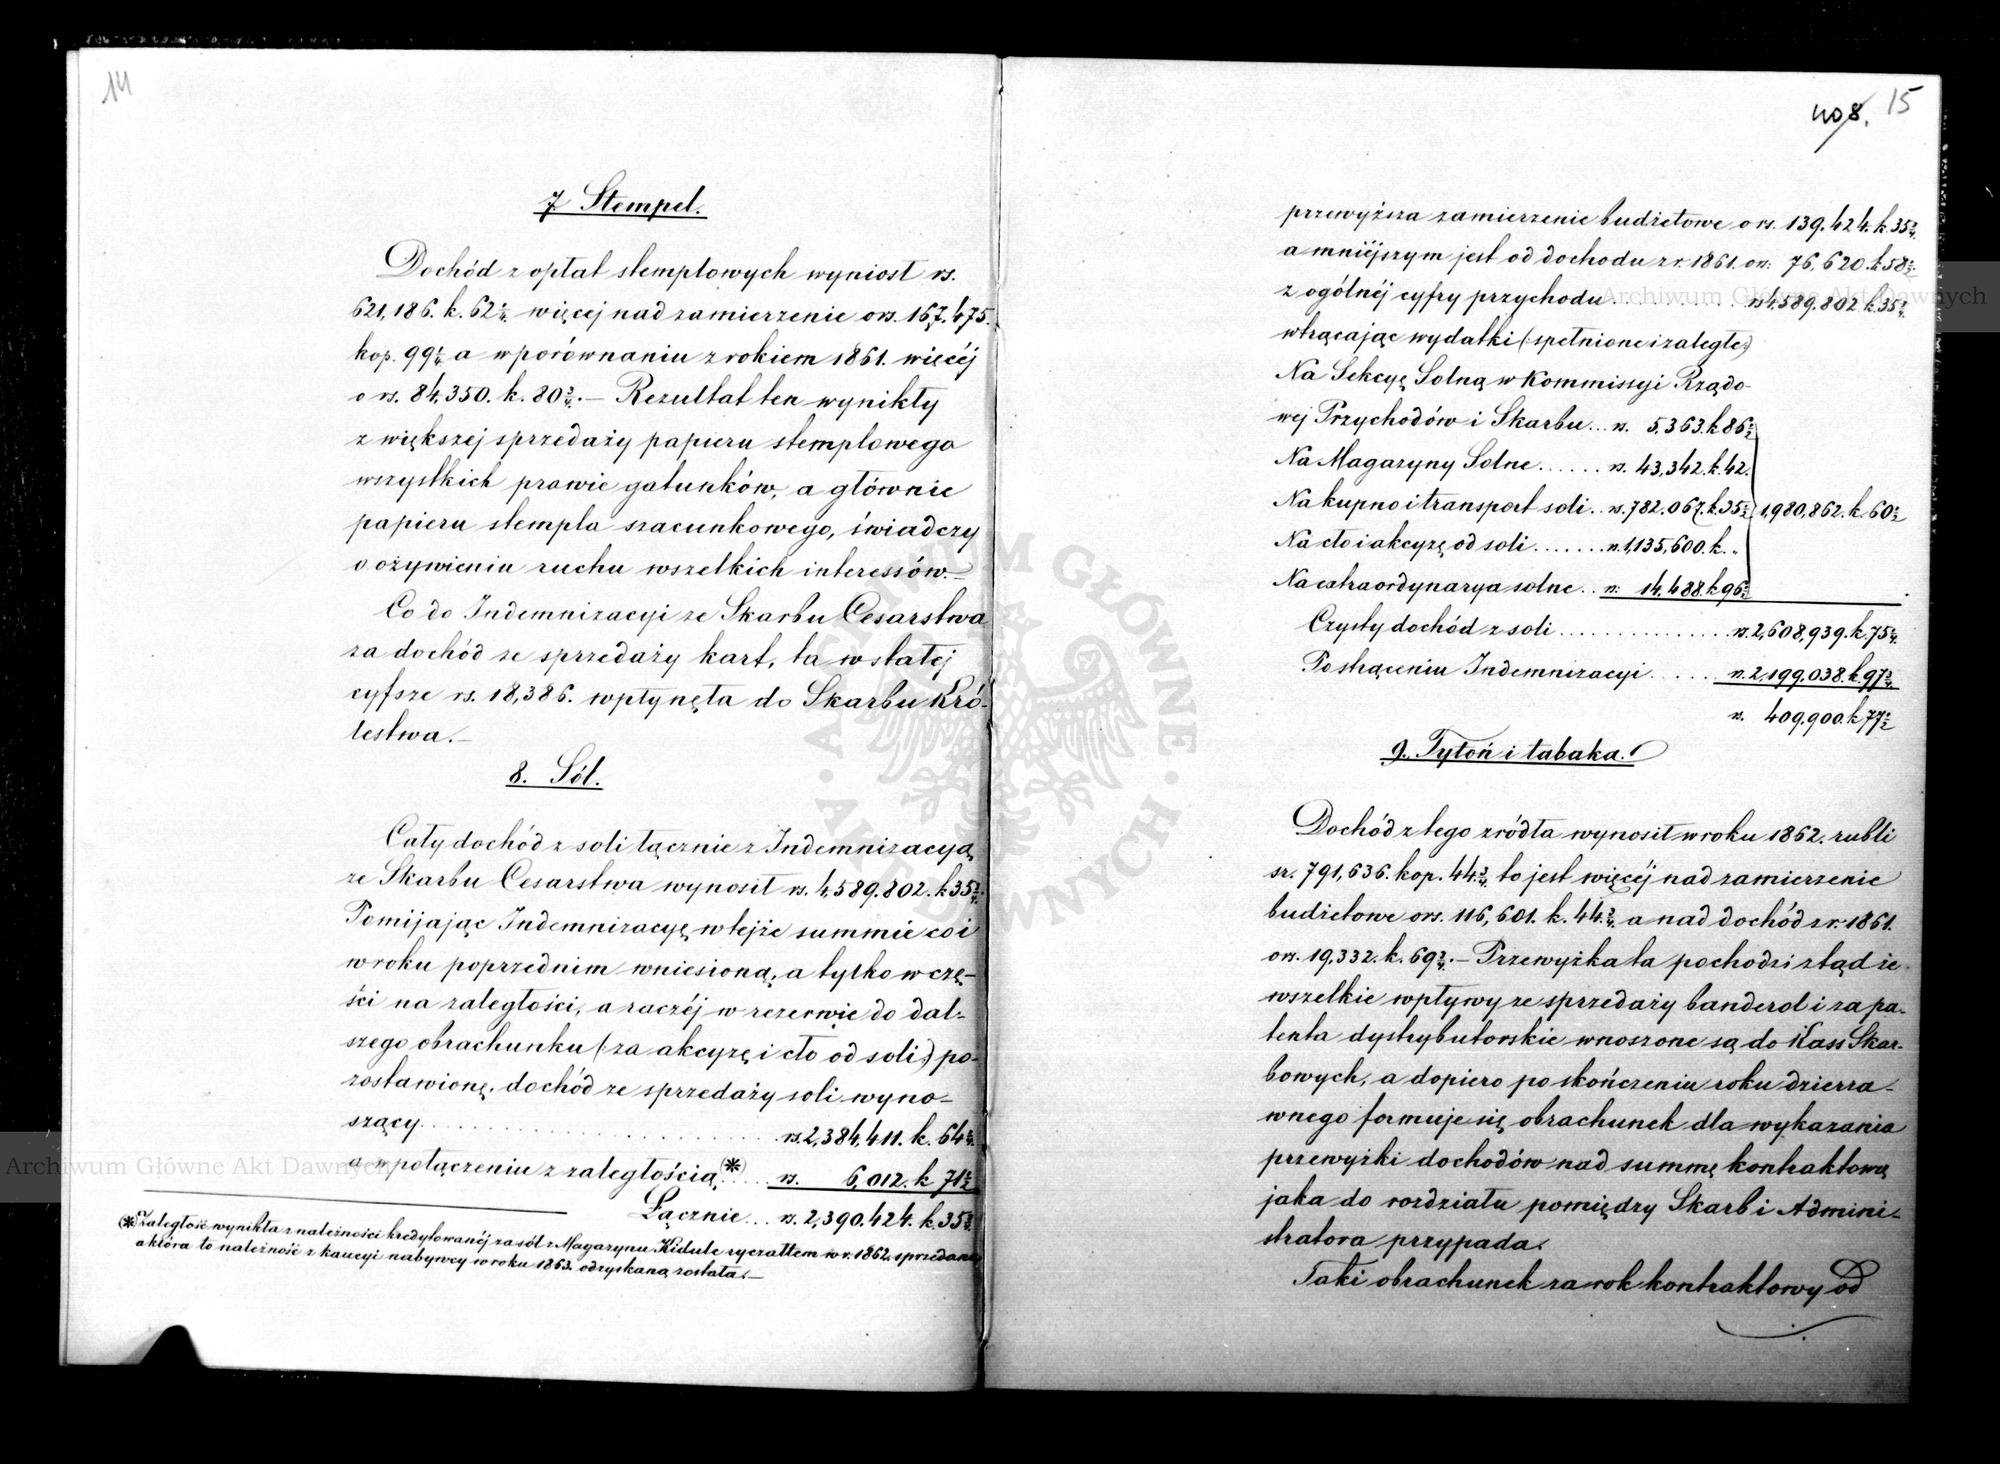 14
7. Stempel.
Dochód z opłat stemplowych wyniosł rs.
621,186. k. 62 2/4. więcej nad zamierzenie o rs. 167,475.
kop. 99 1/4 a w porównaniu z rokiem 1861. więcéj
o rs. 84,350. k. 80 3/4. — Rezultat ten wynikły
z większej sprzedaży papieru stemplowego
wszystkich prawie gatunków, a głównie
papieru stempla szacunkowego, świadczy
o ożywieniu ruchu wszelkich interessów. —
Co do Indemnizacyi ze Skarbu Cesarstwa
za dochód ze sprzedaży kart, ta w stałej
cyfrze rs. 18,386. wpłynęła do Skarbu Kró-
lestwa. —
8. Sól.
Cały dochód z soli łącznie z Indemnizacyą
ze Skarbu Cesarstwa wynosił rs. 4,589.802. k 35 3/4.
Pomijając Indemnizacyę w tejże summie co i
w roku poprzednim wniesioną, a tylko w czę-
ści na zaległości, a raczéj w rezerwie do dal-
szego obrachunku (:za akcyzę i cło od soli:) po-
zostawionę, dochód ze sprzedaży soli wyno-
szący . . . . . rs. 2,384,411. k. 64 1/4.
a w połączeniu z zaległością (*) . . . rs. 6,012. k 71 2/4
Łącznie . . . rs. 2,390.424. k. 35 3/4.
(*) Zaległość wynikła z należności kredytowanéj za sól z Magazynu Kidule ryczałtem w r. 1862. sprzedaną
a która to należność z kaucyi nabywcy w roku 1863. odzyskaną została. —
408. 15
przewyższa zamierzenie budżetowe o rs. 139.424. k 35 3/4.
a mniéjszym jest od dochodu z r. 1861. o rs: 76,620. k 58 2/4.
z ogólnéj cyfry przychodu . . . . . rs 4,589.802 k. 35 3/4.
wtrącając wydatki (:spełnione i zaległe:)
Na Sekcyę Solną w Kommissyi Rządo-
wej Przychodów i Skarbu . . rs. 5,363. k 86 1/2
Na Magazyny Solne . . . . . . rs. 43,342. k. 42.
Na kupno i transport soli . . rs. 782.067. k. 35 1/2 1,980,862. k. 60 1/2
Na cło i akcyzę od soli . . . . . . . rs. 1,135,600. k. „
Na extraordynarya solne . . rs: 14,488. k 96 1/2
Czysty dochód z soli . . . . . rs. 2,608,939. k. 75 1/4.
Po strąceniu Indemnizacyi . . . . . rs. 2,199,038. k. 97 3/4
rs. 409,900. k 77 1/2
9. Tytoń i tabaka.
Dochód z tego zródła wynosił w roku 1862. rubli
sr. 791,636. kop. 44 3/4. to jest więcéj nad zamierzenie
budżetowe o rs. 116,601. k. 44 3/4. a nad dochód z r. 1861.
o rs. 19,332. k. 69 3/4. — Przewyżka ta pochodzi ztąd że
wszelkie wpływy ze sprzedaży banderol i za pa-
tenta dystrybutorskie wnoszone są do Kass Skar-
bowych, a dopiero po skończeniu roku dzierża-
wnego formuje się obrachunek dla wykazania
przewyżki dochodów nad summę kontraktową
jaka do rozdziału pomiędzy Skarb i Admini-
stratora przypada.
Taki obrachunek za rok kontraktowy od
Archiwum Główne Akt Dawnych
Archiwum Główne Akt Dawnych
ARCHIWUM GŁÓWNE · AKT DAWNYCH ·